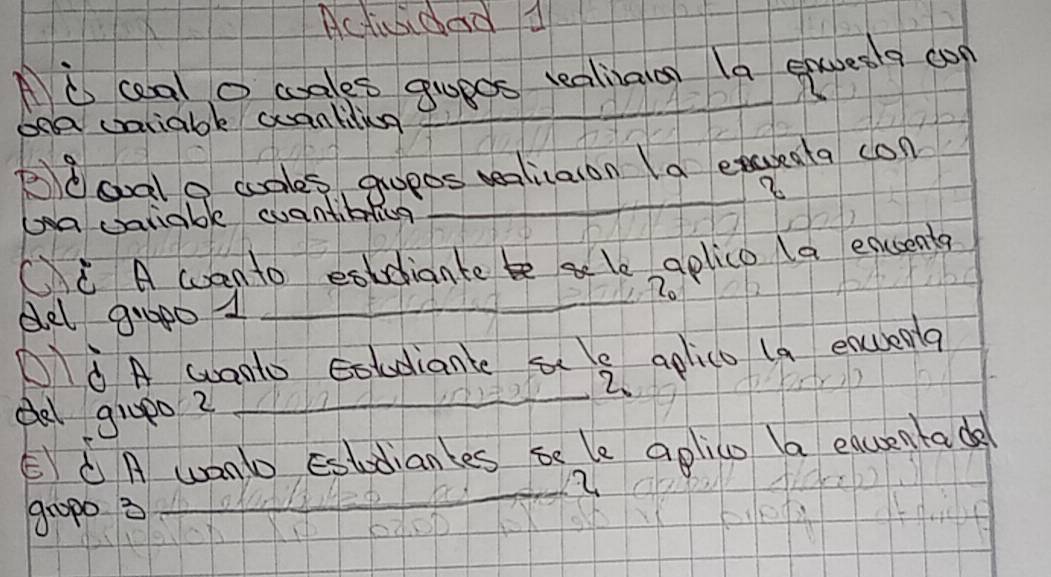 Actividad 1
A) ¿ cual o cuales grupos realizaron la encuesta con
una variable cuantitiva ____________ ?
B) ¿ cual o cuales grupos realicaron la encuesta con
una variable cuantitativa ____________ ?
C) ¿ A cuanto estudiante se le aplico la encuenta
del grupo 1 ____________ ?
D) ¿ A cuanto Estudiante se le aplico la encuenta
del grupo 2 ____________ ?
E) ¿ A cuanto Estudiantes se le aplico la encuenta del
grupo 3 ____________ ?